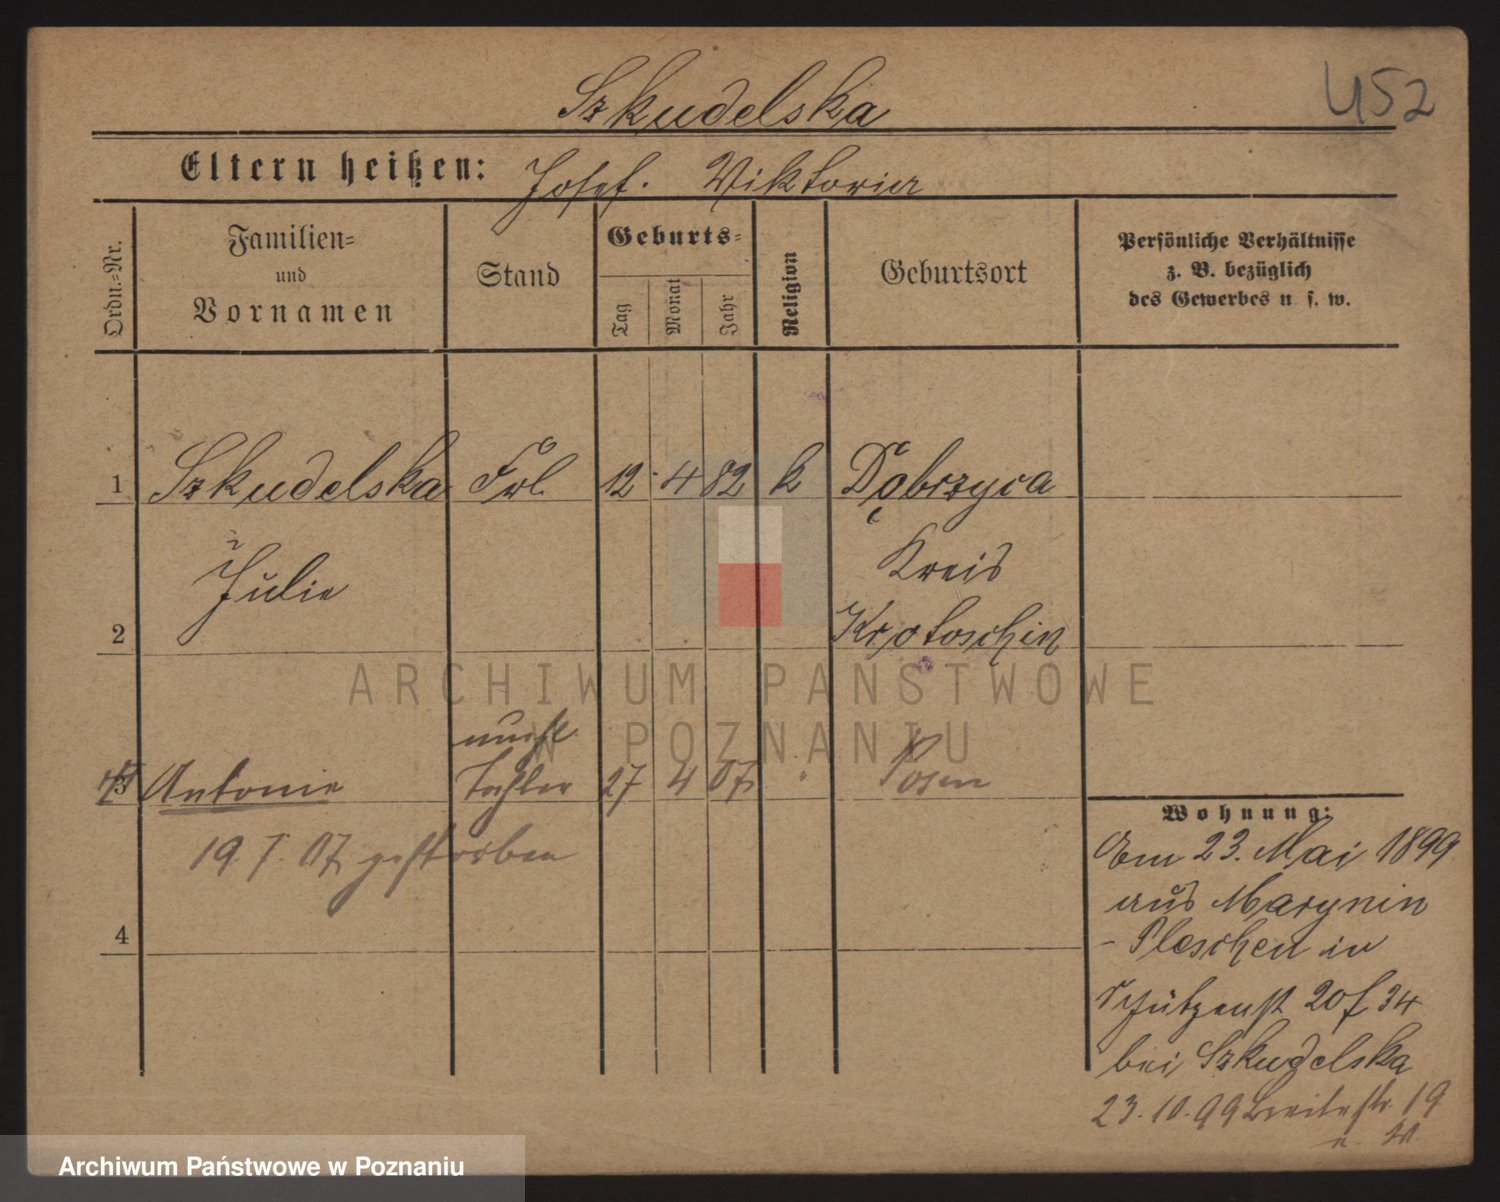 Szkudelska
U52
Eltern heißen: Josef. Viktoria
Ordn.=Nr.
Familien=
und
Vornamen
Stand
Geburts=
Tag
Monat
Jahr
Religion
Geburtsort
Persönliche Verhältnisse
z. B. bezüglich
des Gewerbes u. s. w.
1 Szkudelska Frl 12. 4 82 k Dąbrzyca
Julie
Kreis
2 Krotoschin
ARCHIWUM PAŃSTWOWE
W POZNANIU
unehl
3 Antonie Tochter 27 4 07 Posen
19. 7. 07 gestorben
4
Wohnung:
Am 23. Mai 1899
aus Marynin
- Pleschen in
Schützenst 20 f. 34
bei Szkudelska
23.10.99 Breitestr. 19
Archiwum Państwowe w Poznaniu